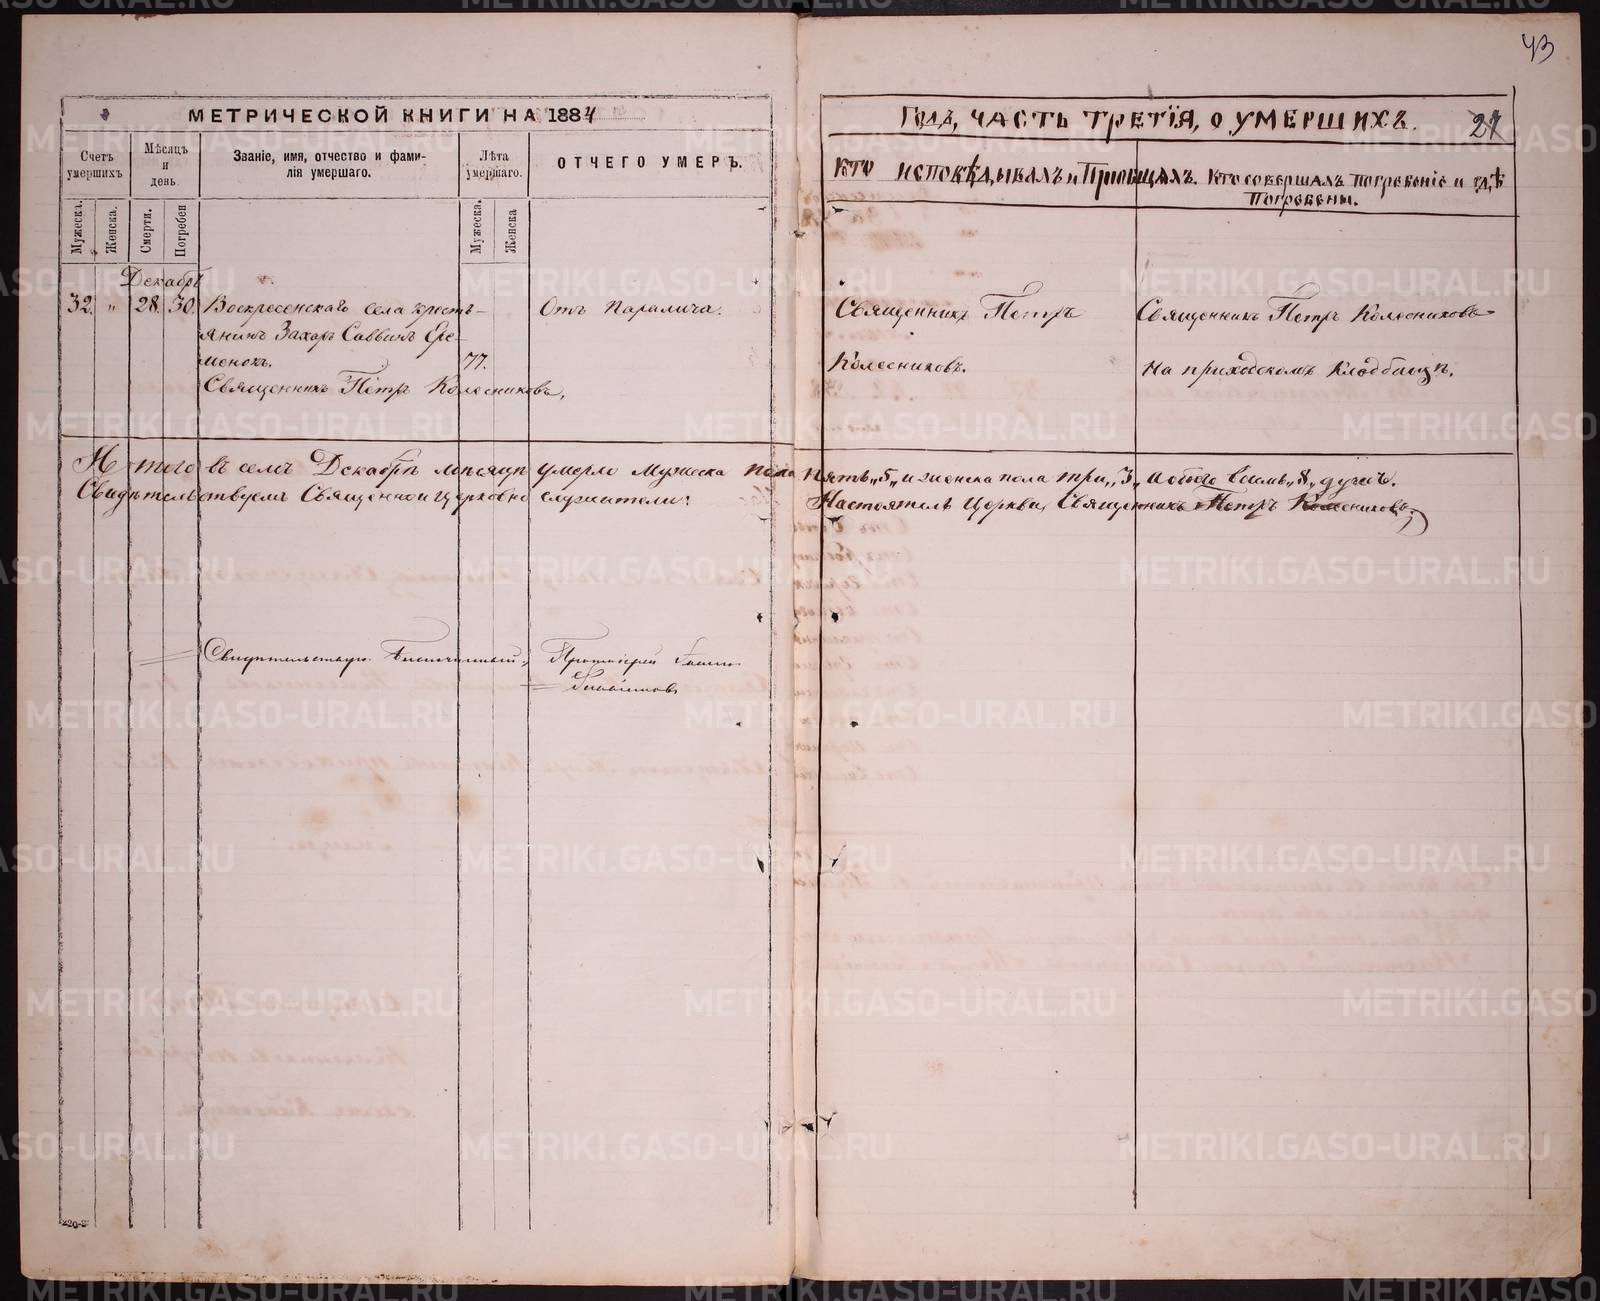 43
МЕТРИЧЕСКОЙ КНИГИ НА 1884
Годъ, ЧАСТЬ ТРЕТІЯ, О УМЕРШИХЪ.
Счетъ умершихъ
Мѣсяцъ и день
Званіе, имя, отчество и фами-
лія умершаго.
Лѣта умершаго.
ОТЧЕГО УМЕРЪ.
Кто исповѣдывалъ и Пріобщалъ.
Кто совершалъ погребеніе и гдѣ
Погребены.
Мужеска.
Женска.
Смерти.
Погребен
Мужеска.
Женска
Декабрь
32. " 28. 30. Воскресенскаго села кресть-
янинъ Захаръ Саввинъ Ере-
менокъ. 77.
Отъ Паралича.
Священникъ Петръ
Колесниковъ.
Священникъ Петръ Колесниковъ
На приходскомъ Кладбищѣ.
Священникъ Петръ Колесниковъ,
Итого въ семъ Декабрѣ мѣсяцѣ умерло Мужеска пола пять „5„ и женска пола три „3„ А обоего восемь „8„ душъ.
Свидѣтельствуемъ Священно и церковно служители: Настоятель Церкви, Священникъ Петръ Колесниковъ,
Свидѣтельствую. Благочинный, Протоіерей
220-2
METRIKI.GASO-URAL.RU